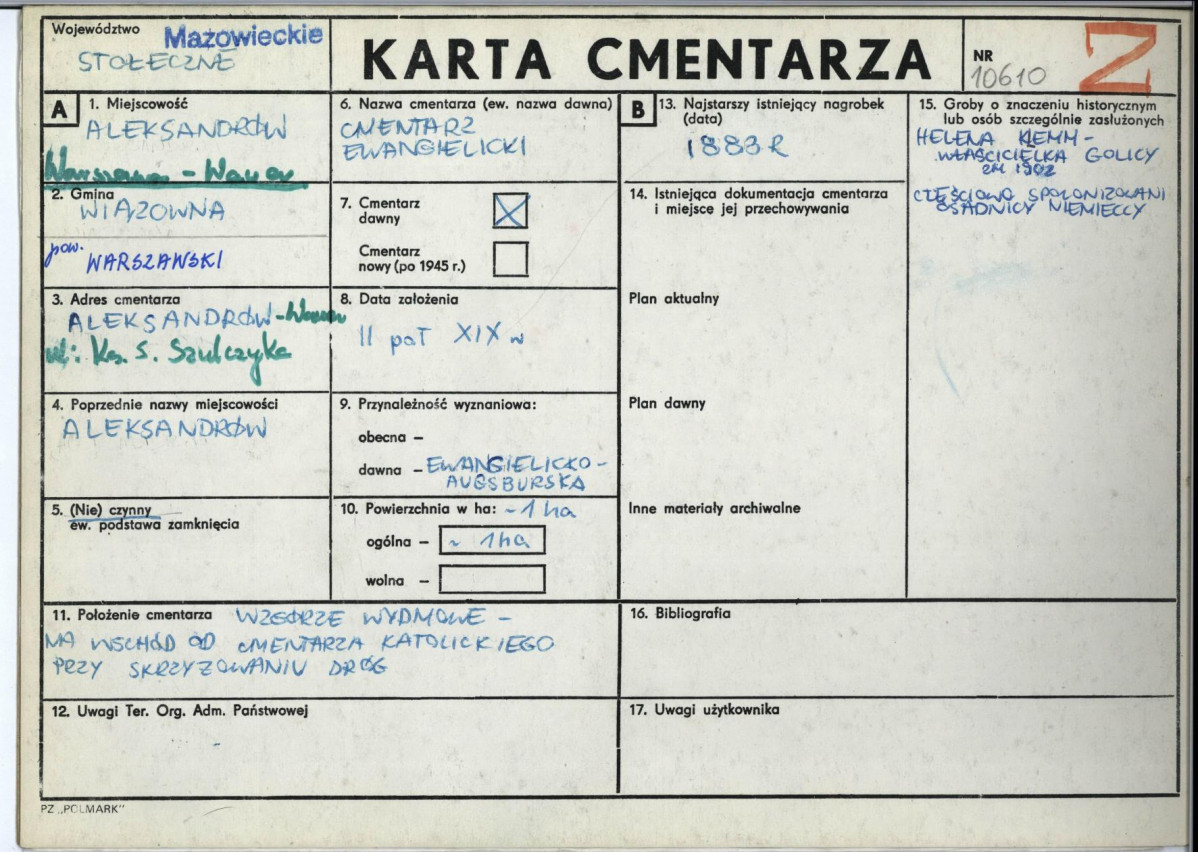 Województwo Mazowieckie
STOŁECZNE
KARTA CMENTARZA
NR
10610
Z
A
1. Miejscowość
ALEKSANDRÓW
Warszawa - Wawer
2. Gmina
WIĄZOWNA
pow.
WARSZAWSKI
3. Adres cmentarza
ALEKSANDRÓW - Wawer
ul: Ks. S. Szulczyka
4. Poprzednie nazwy miejscowości
ALEKSANDRÓW
5. (Nie) czynny
ew. podstawa zamknięcia
6. Nazwa cmentarza (ew. nazwa dawna)
CMENTARZ
EWANGIELICKI
7. Cmentarz
dawny
Cmentarz
nowy (po 1945 r.)
8. Data założenia
II poł XIX w
9. Przynależność wyznaniowa:
obecna –
dawna – EWANGIELICKO-
AUGSBURSKA
10. Powierzchnia w ha: ~ 1 ha
ogólna – ~ 1 ha
wolna –
11. Położenie cmentarza WZGÓRZE WYDMOWE –
NA WSCHÓD OD CMENTARZA KATOLICKIEGO
PRZY SKRZYZOWANIU DRÓG
12. Uwagi Ter. Org. Adm. Państwowej
B
13. Najstarszy istniejący nagrobek
(data)
1883 R
14. Istniejąca dokumentacja cmentarza
i miejsce jej przechowywania
Plan aktualny
Plan dawny
Inne materiały archiwalne
15. Groby o znaczeniu historycznym
lub osób szczególnie zasłużonych
HELENA KLEMM –
WŁAŚCICIELKA GOLICY
ZM 1902
CZĘŚCIOWO SPOLONIZOWANI
OSADNICY NIEMIECCY
16. Bibliografia
17. Uwagi użytkownika
PZ „POLMARK"